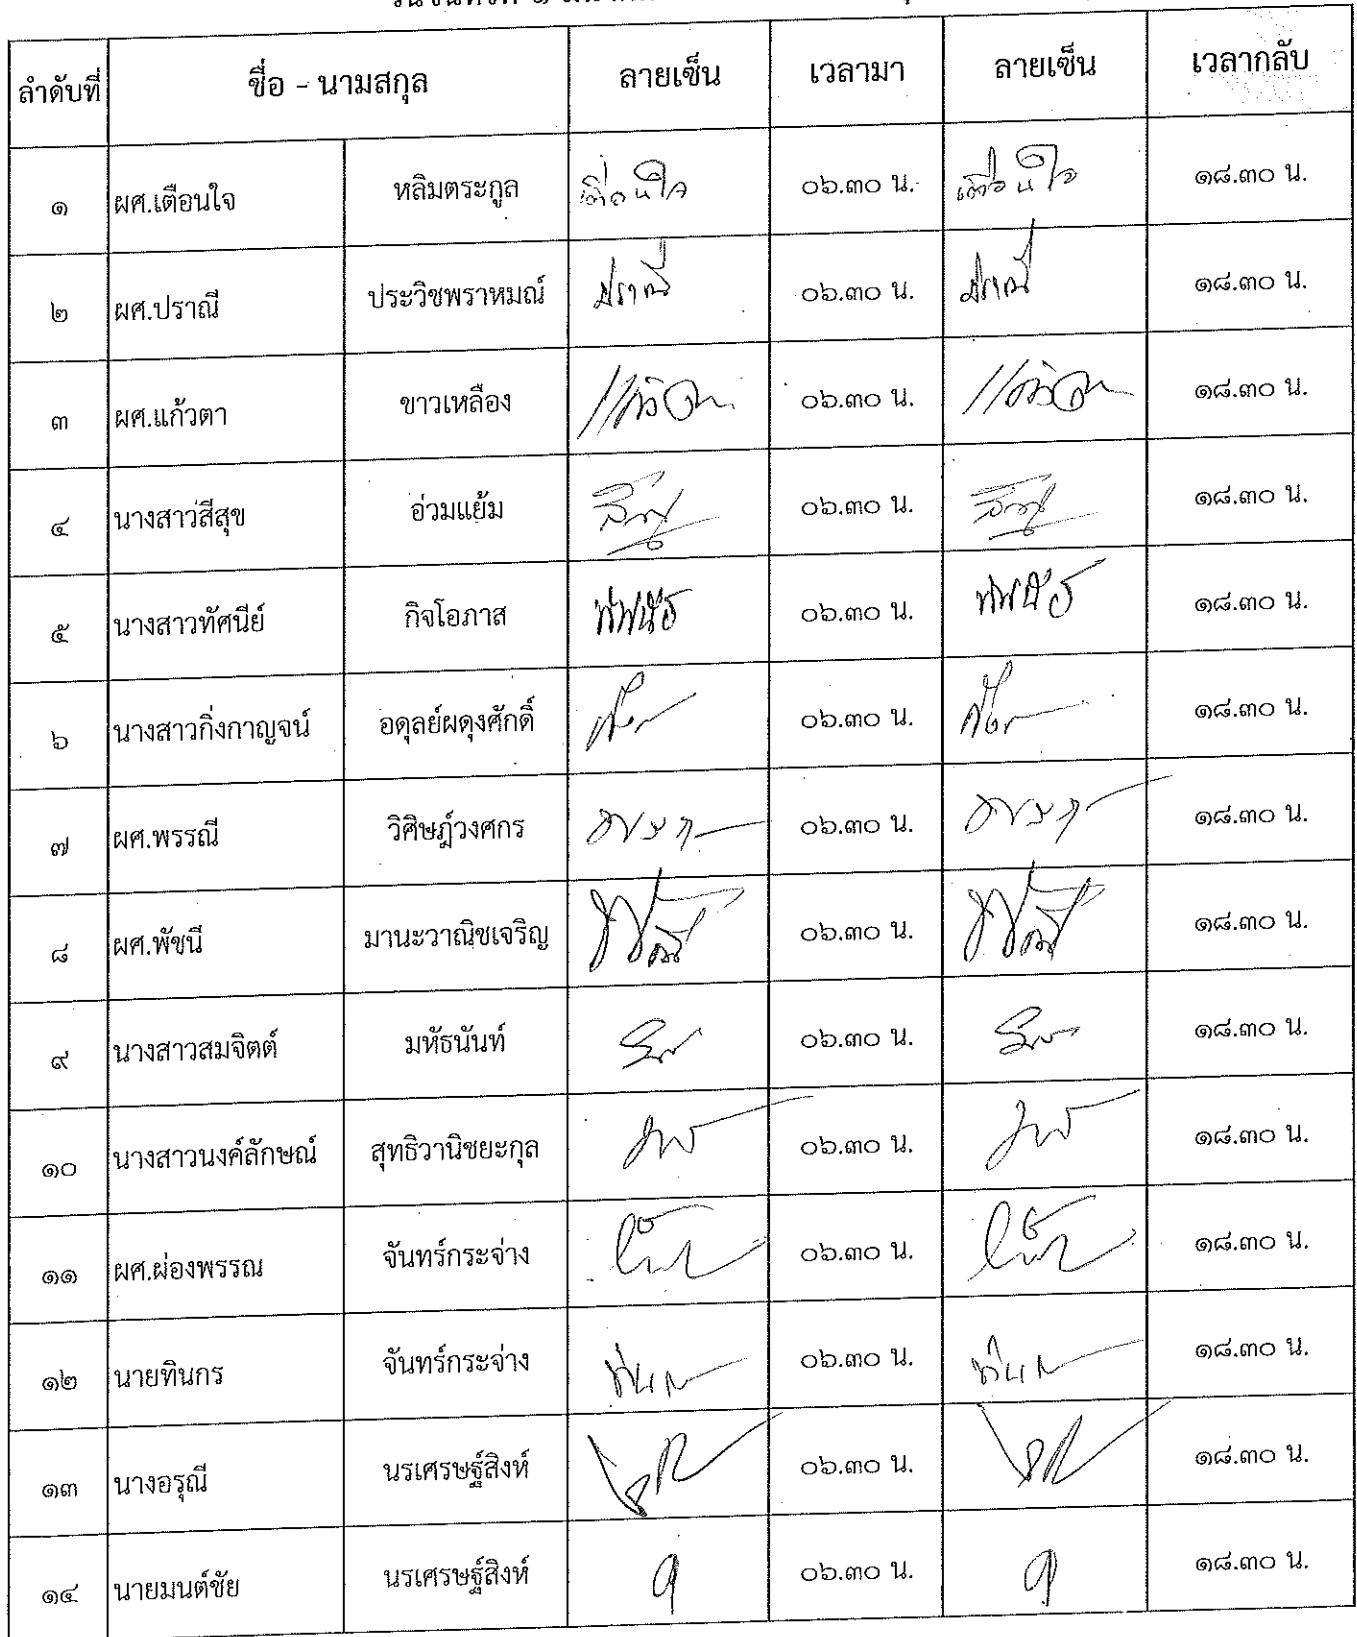 ลำดับที่ ชื่อ - นามสกุล ลายเซ็น เวลามา ลายเซ็น เวลากลับ
๑ ผศ.เตือนใจ หลิมตระกูล เตือนใจ ๐๖.๓๐ น. เตือนใจ ๑๘.๓๐ น.
๒ ผศ.ปราณี ประวิชพราหมณ์ ปราณี ๐๖.๓๐ น. ปราณี ๑๘.๓๐ น.
๓ ผศ.แก้วตา ขาวเหลือง แก้วตา ๐๖.๓๐ น. แก้วตา ๑๘.๓๐ น.
๔ นางสาวสีสุข อ่วมแย้ม ๐๖.๓๐ น. ๑๘.๓๐ น.
๕ นางสาวทัศนีย์ กิจโอภาส ๐๖.๓๐ น. ๑๘.๓๐ น.
๖ นางสาวกิ่งกาญจน์ อดุลย์ผดุงศักดิ์ ๐๖.๓๐ น. ๑๘.๓๐ น.
๗ ผศ.พรรณี วิศิษฎ์วงศกร ๐๖.๓๐ น. ๑๘.๓๐ น.
๘ ผศ.พัชนี มานะวาณิชเจริญ ๐๖.๓๐ น. ๑๘.๓๐ น.
๙ นางสาวสมจิตต์ มหัธนันท์ ๐๖.๓๐ น. ๑๘.๓๐ น.
๑๐ นางสาวนงค์ลักษณ์ สุทธิวานิชยะกุล ๐๖.๓๐ น. ๑๘.๓๐ น.
๑๑ ผศ.ผ่องพรรณ จันทร์กระจ่าง ๐๖.๓๐ น. ๑๘.๓๐ น.
๑๒ นายทินกร จันทร์กระจ่าง ๐๖.๓๐ น. ๑๘.๓๐ น.
๑๓ นางอรุณี นรเศรษฐ์สิงห์ ๐๖.๓๐ น. ๑๘.๓๐ น.
๑๔ นายมนต์ชัย นรเศรษฐ์สิงห์ ๐๖.๓๐ น. ๑๘.๓๐ น.